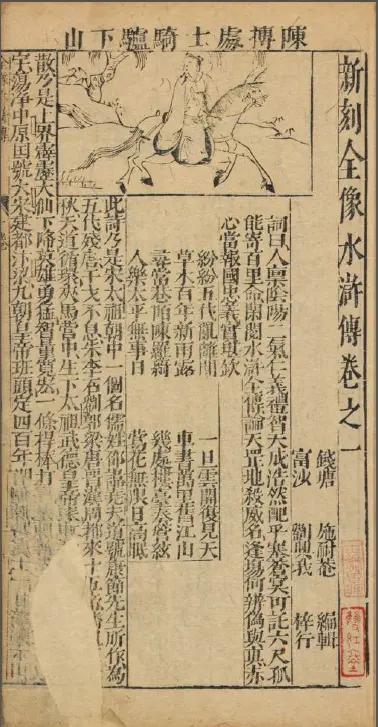 陳摶處士騎驢下山
新刻全像水滸傳卷之一
錢塘 施耐菴 編輯
富沙 劉興我 梓行
詞曰人稟陰陽二氣仁義禮智天成浩然配乎塞蒼冥可託六尺孤
能寄百里命閑閱水滸全傳論天罡地殺威名逢場何辨偽與真赤
心當報國忠義實堪欽
紛紛五代亂離間 一旦雲開復見天
草木百年新雨露 車書萬里舊江山
尋常巷陌陳羅綺 幾處樓臺奏管絃
人樂太平無事日 鶯花無限日高眠
此詩乃是宋太祖朝中一個名儒姓邵諱堯夫道號康節先生所作為
五代殘唐干戈不息朱李石劉郭梁唐晉漢周都來十五帝
秋天道循環夾馬營中生下太祖武德皇帝來
散乃是上界霹靂大仙下降英雄勇猛智量寬宏一條桿棒打
定蕩淨中原国號大宋建都汴九朝皇帝班頭定四百年開
雙紅堂